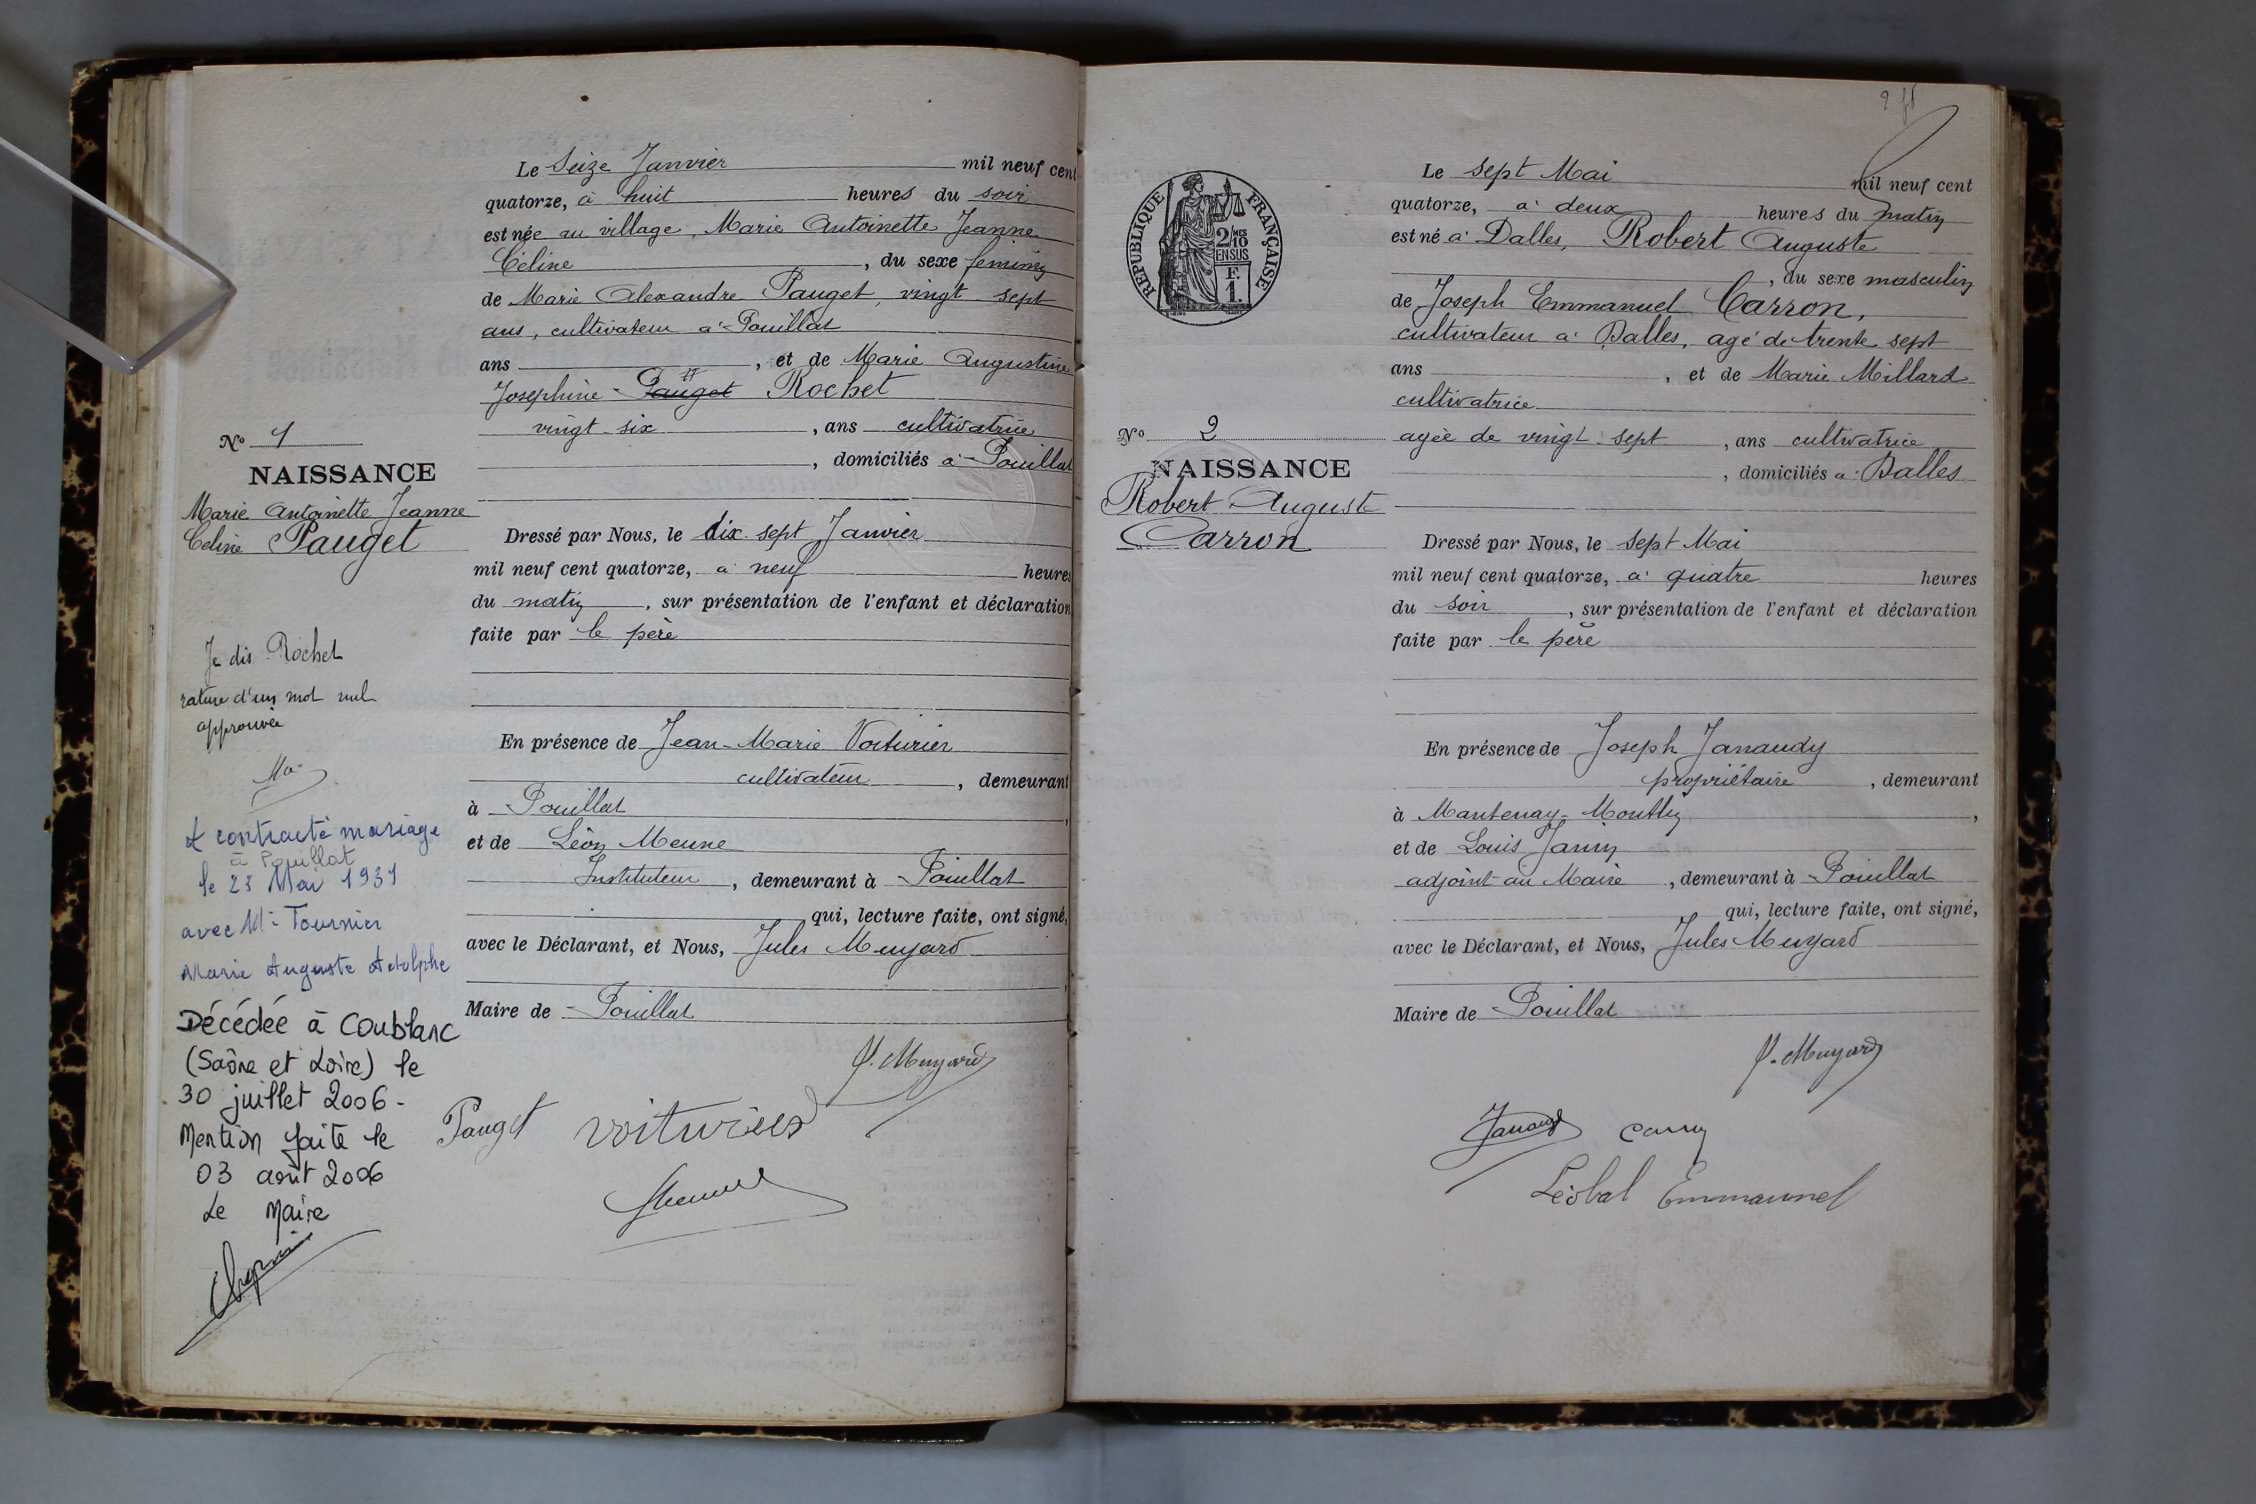 Le Seize Janvier mil neuf cent
quatorze, à huit heures du soir
est née au village, Marie Antoinette Jeanne
Céline, du sexe feminin
de Marie Alexandre Pauget, vingt sept
ans, cultivateur à Pouillat
ans, et de Marie Augustine
Joséphine Pauget Rochet
vingt six, ans cultivatrice
, domiciliés à Pouillat
No 1
NAISSANCE
Marie Antoinette Jeanne
Celine Pauget
Dressé par Nous, le dix sept Janvier
mil neuf cent quatorze, à neuf heures
du matin, sur présentation de l'enfant et déclaration
faite par le père
Je dis Rochet
rature d'un mot nul
approuvée
En présence de Jean-Marie Voiturier
cultivateur, demeurant
à Pouillat,
et de Léon Meune
Instituteur, demeurant à Pouillat
qui, lecture faite, ont signé,
avec le Déclarant, et Nous, Jules Muyard
Maire de Pouillat
A contracté mariage
à Pouillat
le 23 Mai 1931
avec Mr Tournier
Marie Auguste Adolphe
Décédée à Coublanc
(Saône et Loire) le
30 juillet 2006 -
Mention faite le
03 août 2006
Le Maire
J. Muyard
Pauget voiturier
LMeune
2
Le sept Mai mil neuf cent
quatorze, à deux heures du matin
est né à Dalles, Robert Auguste
, du sexe masculin
de Joseph Emmanuel Carron,
cultivateur à Dalles, agé de trente sept
ans, et de Marie Millard
cultivatrice
agée de vingt sept, ans cultivatrice
, domiciliés à Dalles
REPUBLIQUE FRANÇAISE
2/10 MES
EN SUS
F.
1.
No 2
NAISSANCE
Robert Auguste
Carron
Dressé par Nous, le sept Mai
mil neuf cent quatorze, à quatre heures
du soir, sur présentation de l'enfant et déclaration
faite par le père
En présence de Joseph Janaudy
propriétaire, demeurant
à Mantenay-Montlin,
et de Louis Janin
adjoint au Maire, demeurant à Pouillat
qui, lecture faite, ont signé,
avec le Déclarant, et Nous, Jules Muyard
Maire de Pouillat
J. Muyard
Janaudy Carron
Léobal Emmanuel